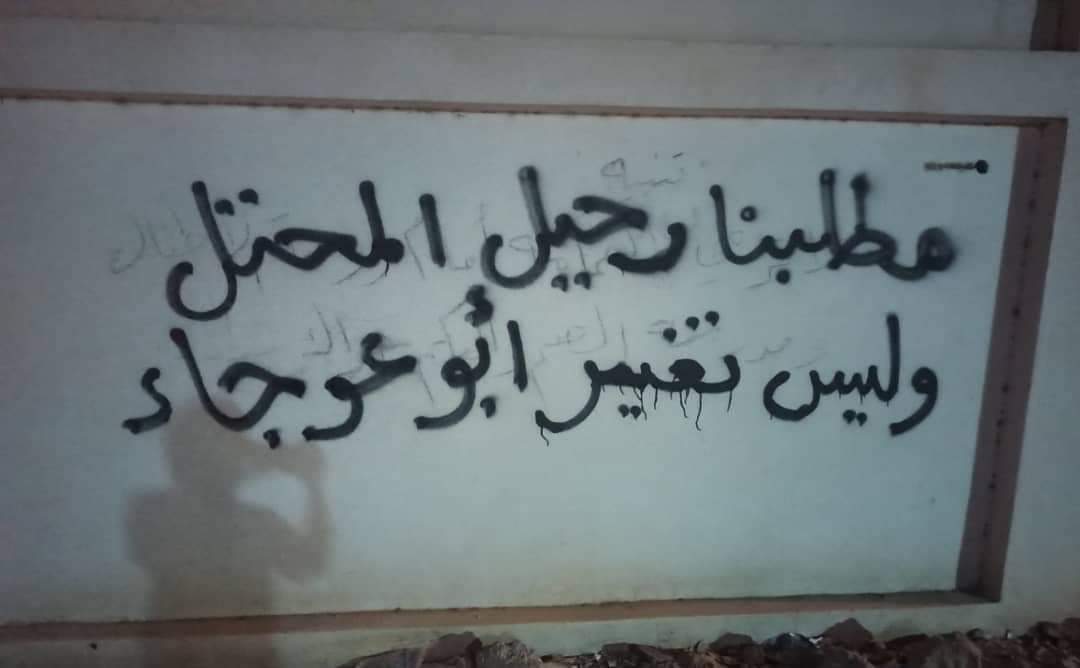 مطلبنا رحيل المحتل
وليس تغيير أبو عوجاء